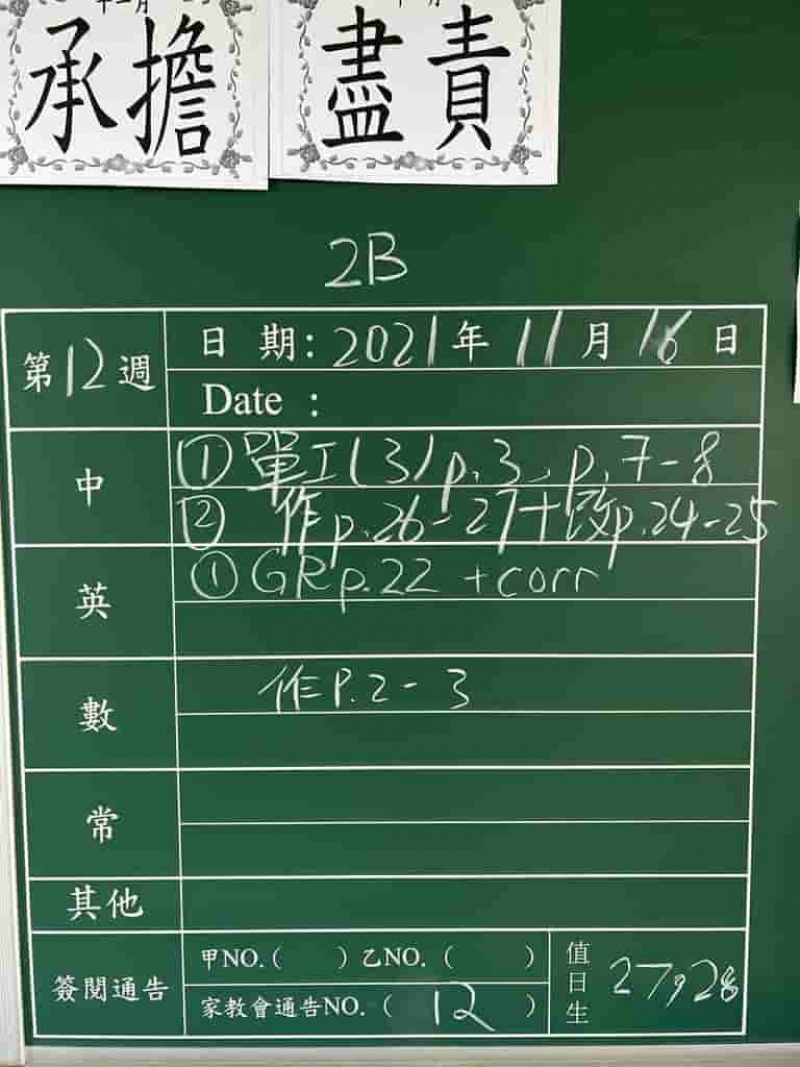 承擔
盡責
2B
第12週
日期：2021年11月16日
Date：
中
①單工(3)p.3、p.7-8
② 作p.26-27+改p.24-25
英
①GRp.22 +corr
數
作P.2-3
常
其他
簽閱通告
甲NO.( ) 乙NO.( )
家教會通告NO.( 12 )
值日生
27,28